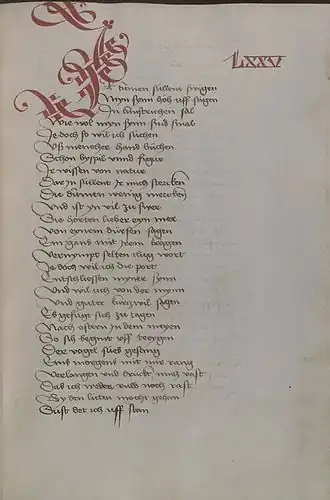 LXXV
Ir tumen süllent swigen
Myn synn hoh uff stigen
In künstrichen sal
Wie wol myn synn sind smal
Je doch so wil ich suchen
Uß mencher hand büchen
Schon byspil unnd figur
Ir wisen von natur
Dar zu süllent ir mich stercken
Die dummen wenig mercken
Und ist yn vil zu swer
Sie horten lieber eyn mer
Von eynem dürsen sagen
Ein gans mit iren kragen
Vernympt selten clug wort
Je doch wil ich die port
Entschliessen myner synn
Und wil uch von der mynn
Und guter kurtzwil sagen
Es gefugt sich zu tagen
Nach ostern in dem meyen
So sich begint uff
Der vogel susß gesang
Eins morgens mit mir rang
Verlangen und druckt mich vast
Das ich weder ruwe noch rast
By den luten mocht gehan
Sust det ich uff stan